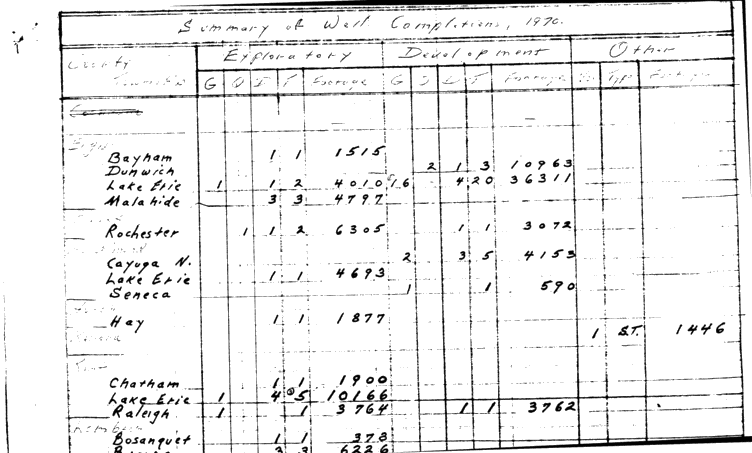 Summary of Well Completions, 1970.
Exploratory Development Other
County
Township G O D T Footage G O D T Footage No Typ Footage
Bayham 1 1 1515
Dunwich 2 1 3 10963
Lake Erie 1 1 2 4010 16 4 20 36311
Malahide 3 3 4797
Rochester 1 1 2 6305 1 1 3072
Cayuga N. 2 3 5 4153
Lake Erie 1 1 4693
Seneca 1 1 590
Hay 1 1 1877
1 S.T. 1446
Chatham 1 1 1900
Lake Erie 1 4 5 10166
Raleigh 1 1 3764 1 1 3762
Bosanquet 1 1 373
3 3 6226